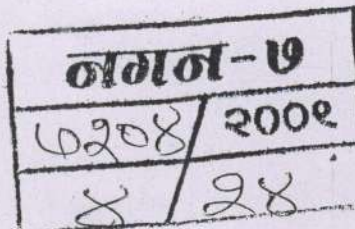 नगन-७
७२०४/२००९
४/२४